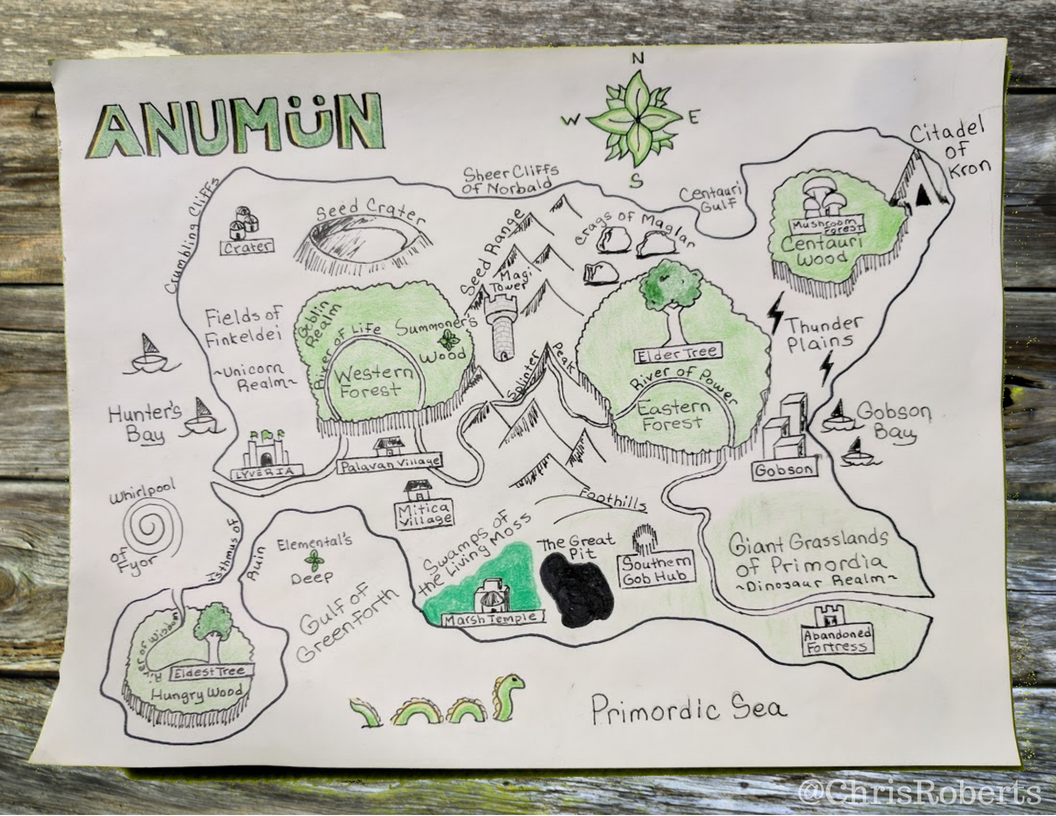 ANUMüN
N
W
E
S
Citadel
of
Kron
Sheer Cliffs
of Norbald
Centauri
Gulf
Crumbling Cliffs
Crater
Seed Crater
Seed Range
Crags of Maglar
Mushroom
Forest
Centauri
Wood
Magi
Tower
Fields of
Finkeldei
~Unicorn
Realm~
Goblin
Realm
River of Life
Summoner's
Wood
Western
Forest
Splinter
Peak
Elder Tree
River of Power
Eastern
Forest
Thunder
Plains
Hunter's
Bay
Gobson
Bay
LYVERIA
Palavan Village
Gobson
Mitica
Village
Foothills
Whirlpool
of
Fyor
Isthmus of
Ruin
Elemental's
Deep
Swamps of
the Living Moss
The Great
Pit
Southern
Gob Hub
Giant Grasslands
of Primordia
~Dinosaur Realm~
Gulf of
Greenforth
Marsh Temple
Abandoned
Fortress
River of Wisdom
Eldest Tree
Hungry Wood
Primordic Sea
@ChrisRoberts